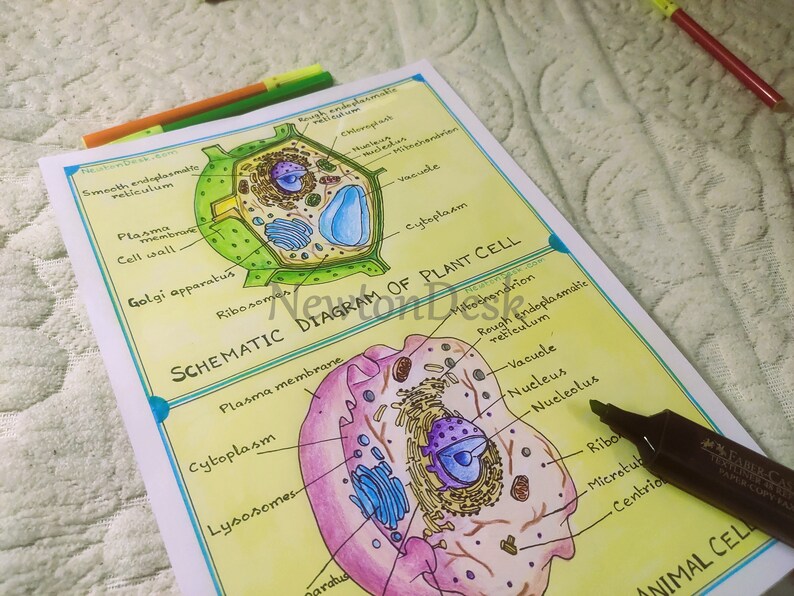 NewtonDesk.com
Rough endoplasmatic
reticulum
Chloroplast
Nucleus
Nucleolus
Mitochondrion
Smooth endoplasmatic
reticulum
Vacuole
Plasma
membrane
Cell wall
Cytoplasm
Golgi apparatus
Ribosomes
SCHEMATIC DIAGRAM OF PLANT CELL
NewtonDesk
NewtonDesk.com
Mitochondrion
Rough endoplasmatic
reticulum
Plasma membrane
Vacuole
Nucleus
Nucleolus
Cytoplasm
Lysosomes
Microtub
Centrio
ANIMAL CELL
FABER-CAS
TEXTLINER 48 RE
PAPER-COPY FA